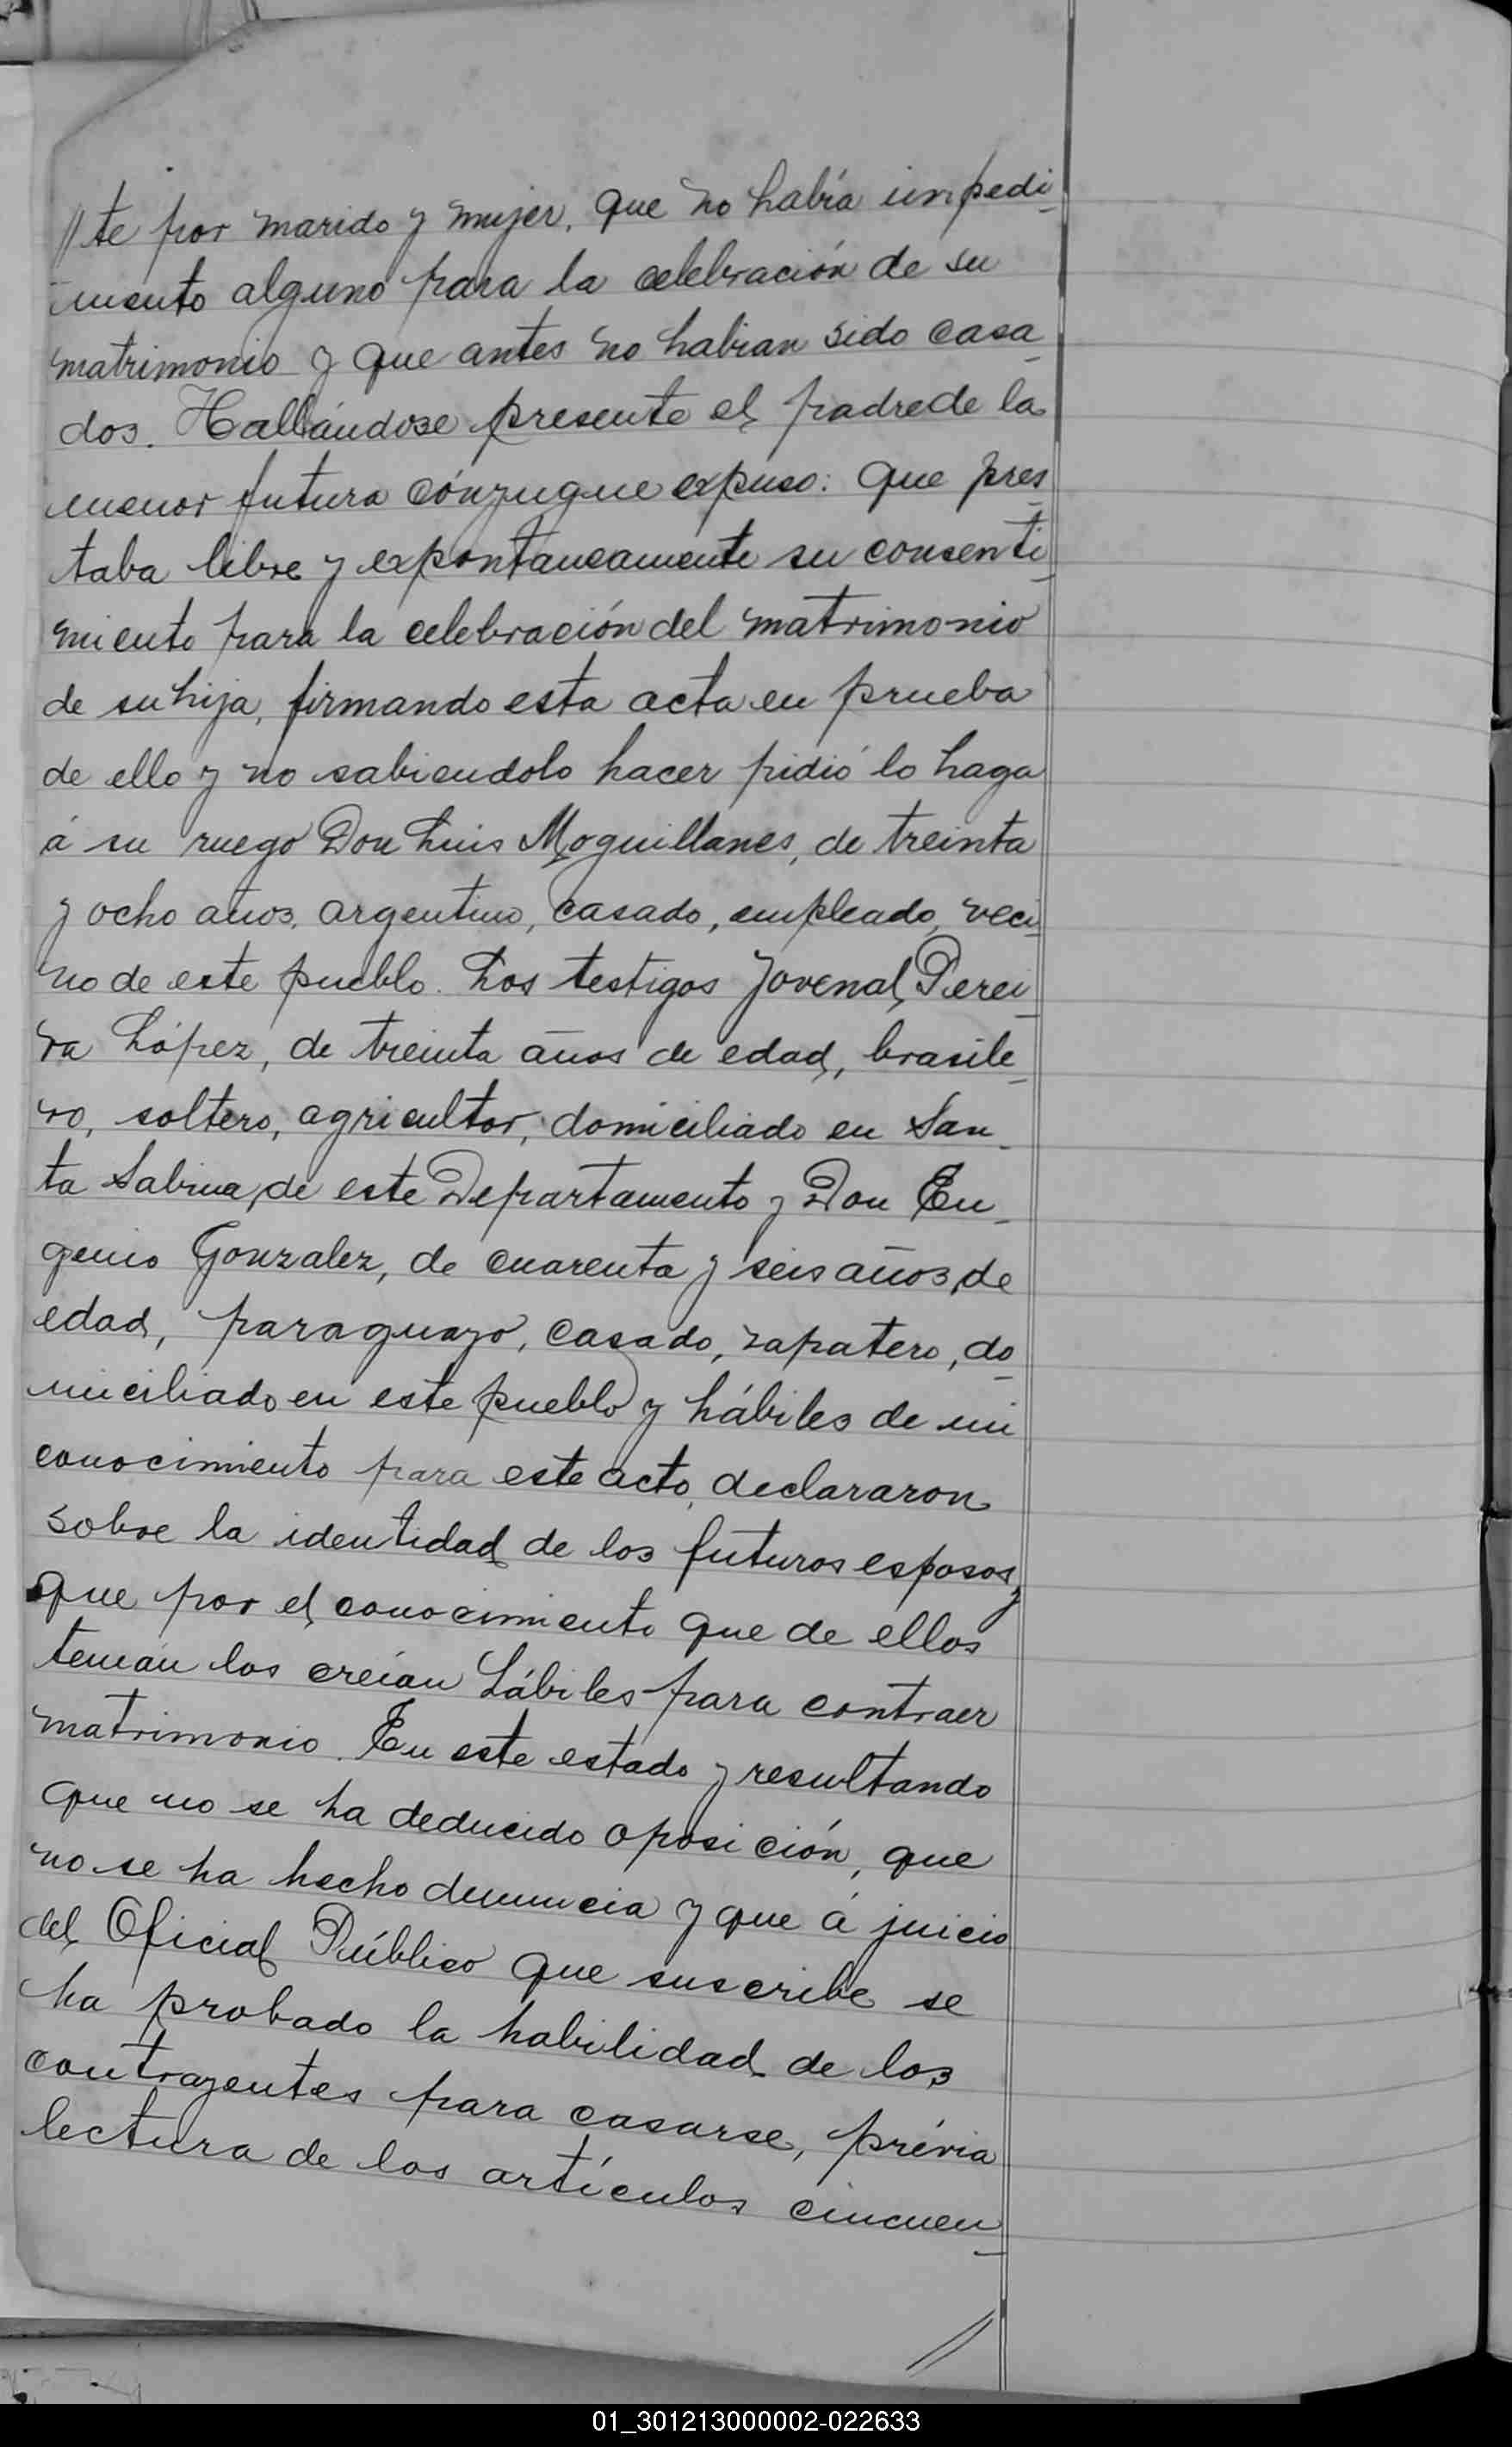 //te por marido y mujer, que no había impedi-
mento alguno para la celebración de su
matrimonio y que antes no habian sido casa-
dos. Hallándose presente el padre de la
menor futura cónyugue expuso: que pres-
taba libre y expontaneamente su consenti-
miento para la celebración del matrimonio
de su hija, firmando esta acta en prueba
de ello y no sabiendolo hacer pidió lo haga
á su ruego Don Luis Moguillanes, de treinta
y ocho años, argentino, casado, empleado, veci-
no de este pueblo. Los testigos Jovenal Perei-
ra López, de treinta años de edad, brasile-
ro, soltero, agricultor, domiciliado en San-
ta Sabina, de este Departamento y Don Eu-
genio Gonzalez, de cuarenta y seis años de
edad, paraguayo, casado, zapatero, do-
miciliado en este pueblo y hábiles de mi
conocimiento para este acto, declararon
sobre la identidad de los futuros esposos y
que por el conocimiento que de ellos
tenían los creían hábiles para contraer
matrimonio. En este estado y resultando
que no se ha deducido oposición, que
no se ha hecho denuncia y que á juicio
del Oficial Público que suscribe se
ha probado la habilidad de los
contrayentes para casarse, prévia
lectura de los artículos cincuen-
//
01_301213000002-022633